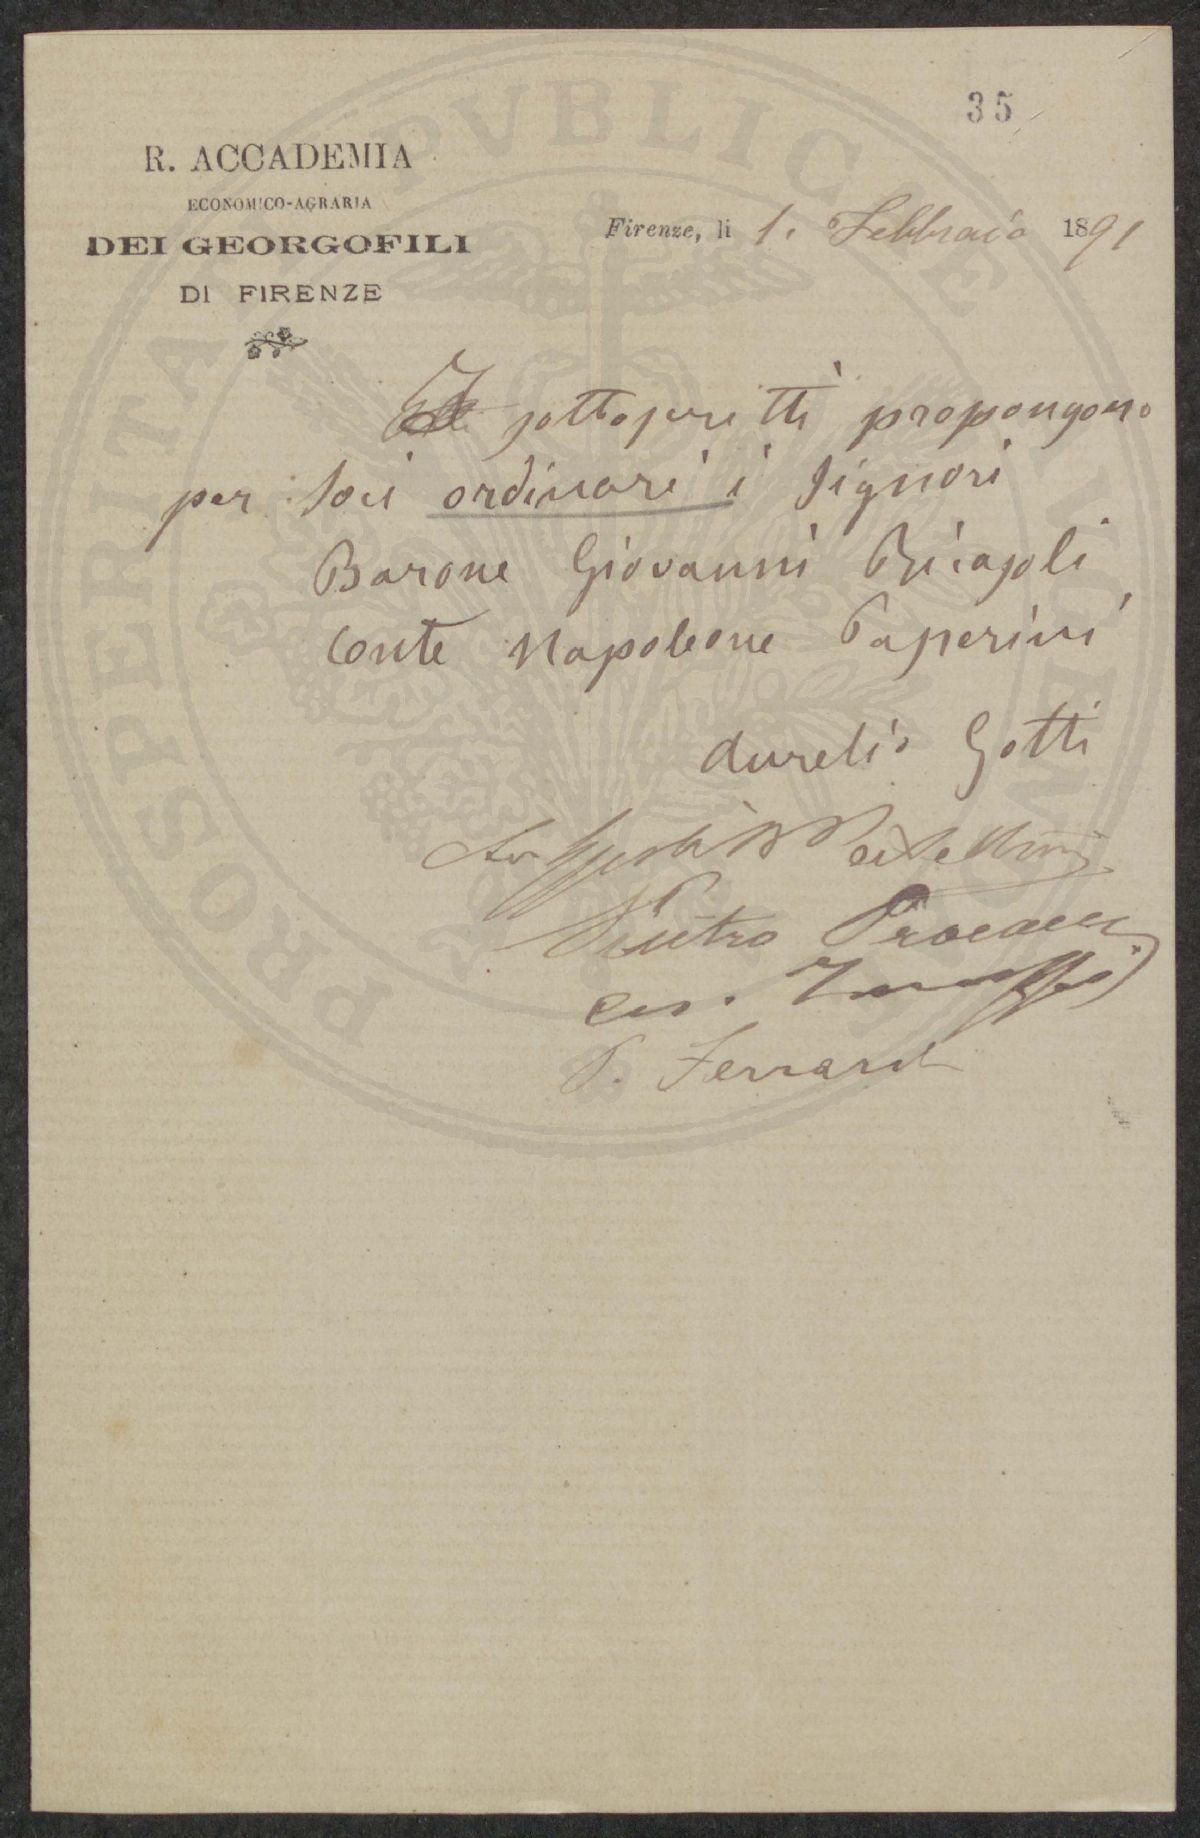 35
R. ACCADEMIA
ECONOMICO-AGRARIA
DEI GEORGOFILI
DI FIRENZE
Firenze, li 1. Febbraio 1891
I sottoscritti propongono
per Soci ordinari i Signori
Barone Giovanni Ricasoli
Conte Napoleone Paperini
Aurelio Gotti
Pietro
P. Ferrari
PROSPERITATI PVBLICAE AVGENDAE